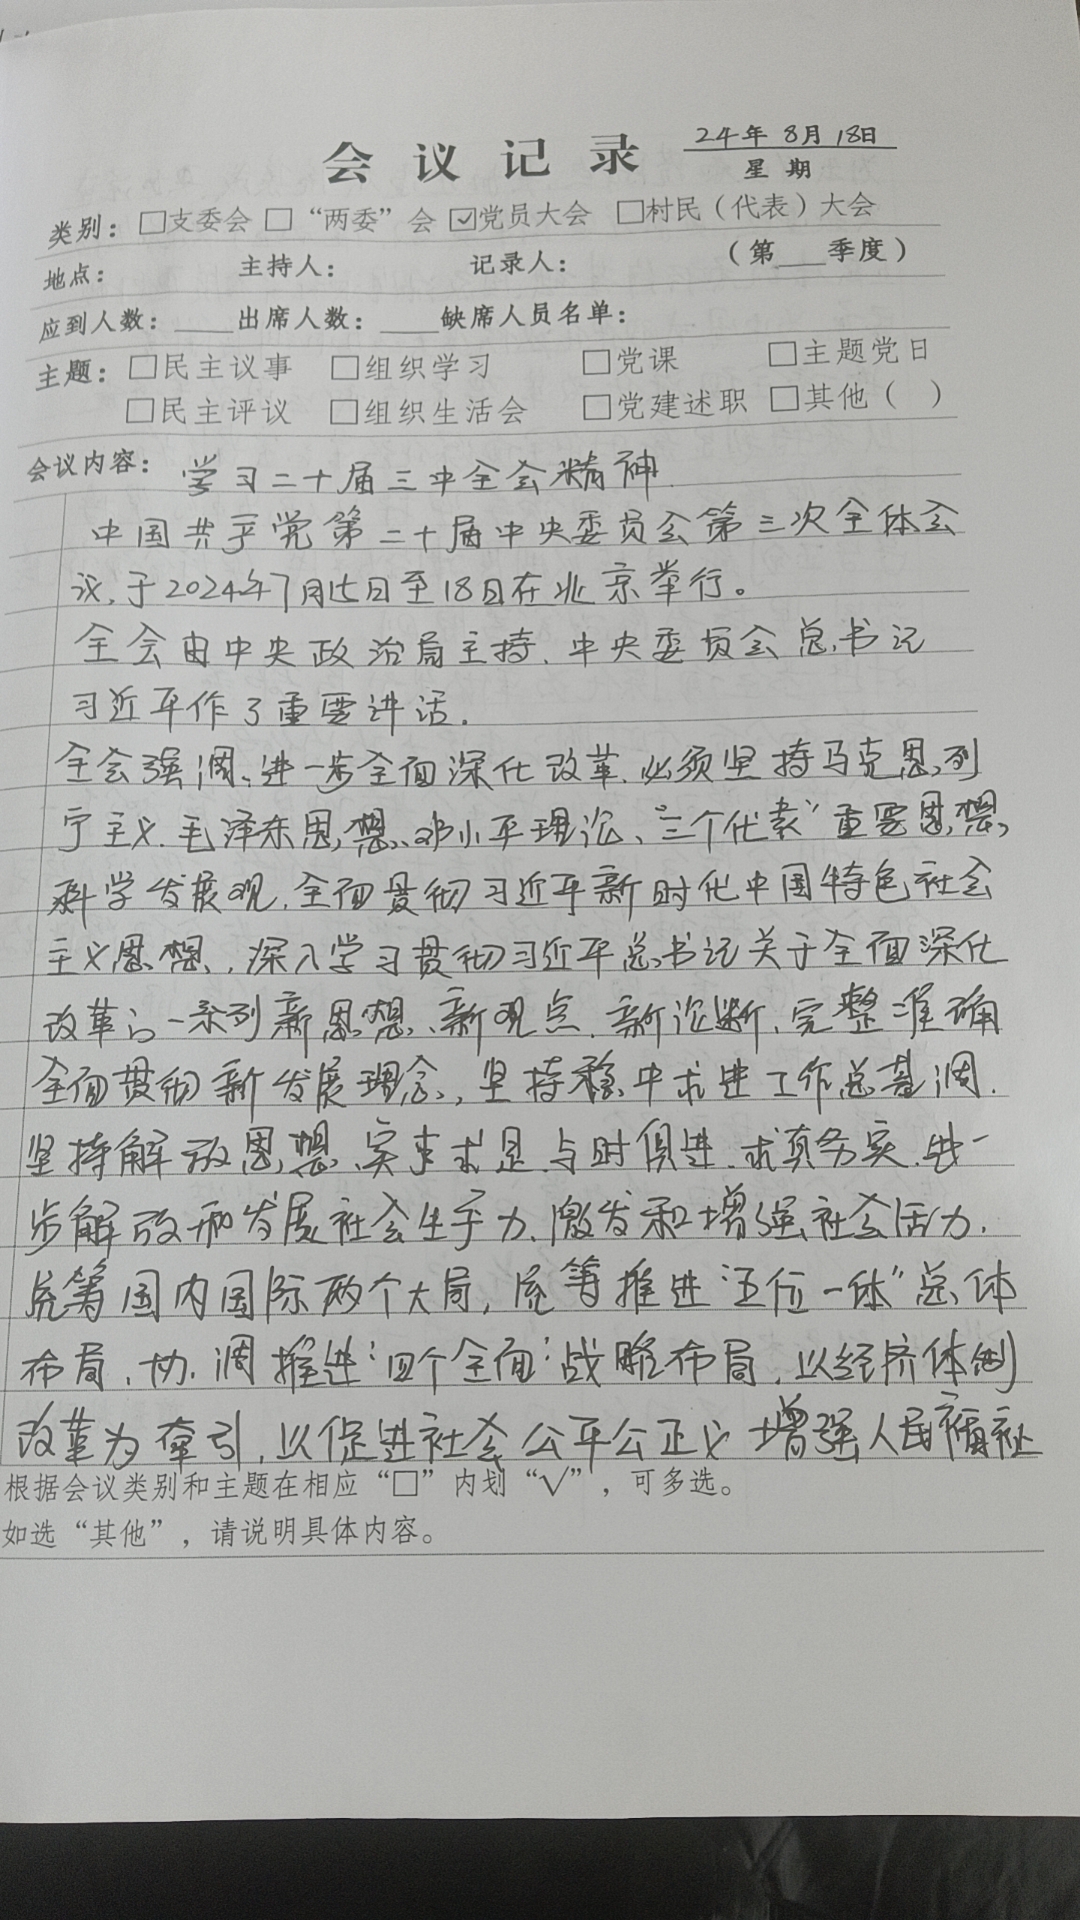 会议记录 24年 8月 18日
星期
类别：□支委会 □“两委”会 ☑党员大会 □村民（代表）大会
地点： 主持人： 记录人： （第___季度）
应到人数：____出席人数：____缺席人员名单：
主题：□民主议事 □组织学习 □党课 □主题党日
□民主评议 □组织生活会 □党建述职 □其他（ ）
会议内容：学习二十届三中全会精神.
中国共产党第二十届中央委员会第三次全体会
议,于2024年7月15日至18日在北京举行。
全会由中央政治局主持、中央委员会总书记
习近平作了重要讲话.
全会强调、进一步全面深化改革.必须坚持马克思列
宁主义.毛泽东思想、邓小平理论、“三个代表”重要思想,
科学发展观.全面贯彻习近平新时代中国特色社会
主义思想,深入学习贯彻习近平总书记关于全面深化
改革的一系列新思想、新观点.新论断.完整准确
全面贯彻新发展理念,坚持稳中求进工作总基调.
坚持解放思想、实事求是.与时俱进.求真务实.进一
步解放和发展社会生产力.激发和增强社会活力.
统筹国内国际两个大局,统筹推进“五位一体”总体
布局、协调推进“四个全面”战略布局.以经济体制
改革为牵引.以促进社会公平公正义 增强人民福祉
根据会议类别和主题在相应“□”内划“√”，可多选。
如选“其他”，请说明具体内容。